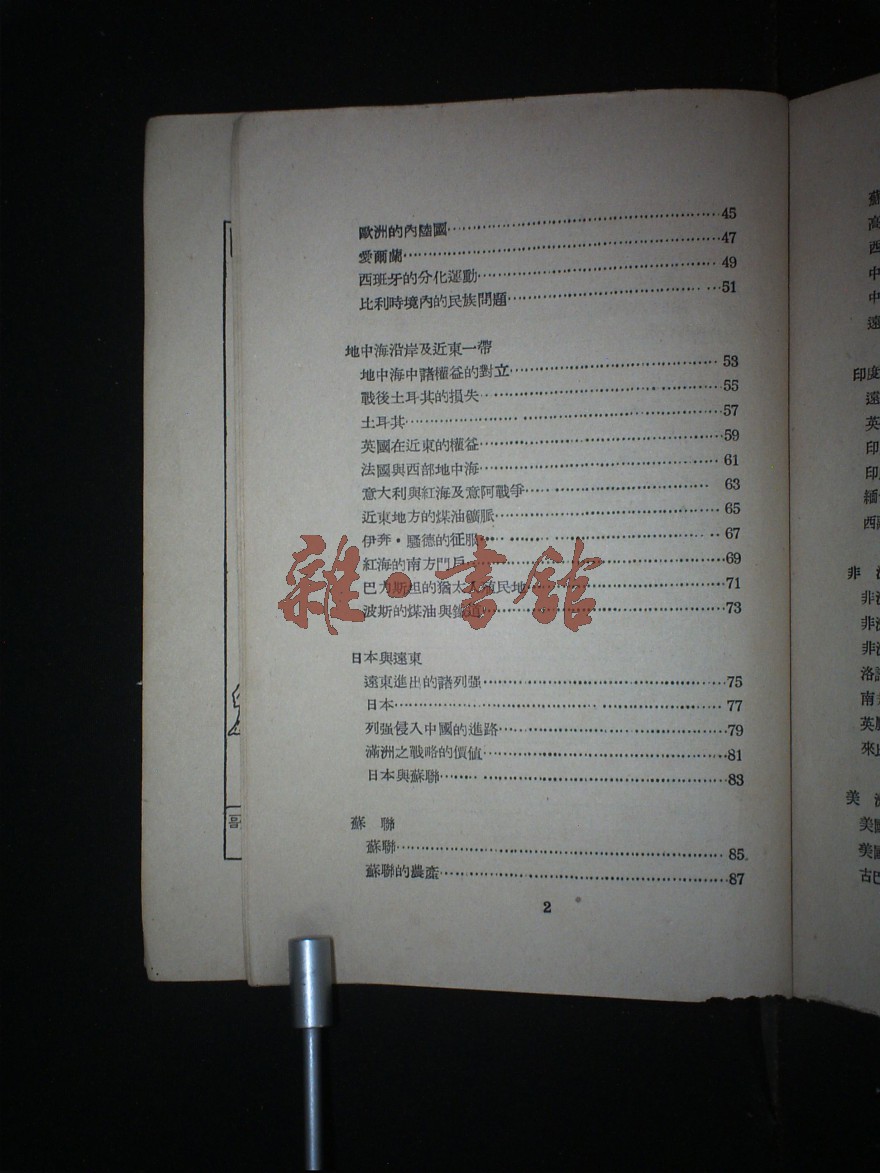 歐洲的內陸國 45
愛爾蘭 47
西班牙的分化運動 49
比利時境內的民族問題 51
地中海沿岸及近東一帶
地中海中諸權益的對立 53
戰後土耳其的損失 55
土耳其 57
英國在近東的權益 59
法國與西部地中海 61
意大利與紅海及意阿戰爭 63
近東地方的煤油礦脈 65
伊奔・騷德的征服 67
紅海的南方門戶 69
巴力斯坦的猶太人殖民地 71
波斯的煤油與鐵道 73
雜·書館
日本與遠東
遠東進出的諸列强 75
日本 77
列强侵入中國的進路 79
滿洲之戰略的價値 81
日本與蘇聯 83
蘇聯
蘇聯 85
蘇聯的農產 87
2
蘇
高
西
中
中
遠
印度
遠
英
印
印
緬
西藏
非 洲
非洲
非洲
非洲
洛
南
英屬
來比
美 洲
美國
美國
古巴